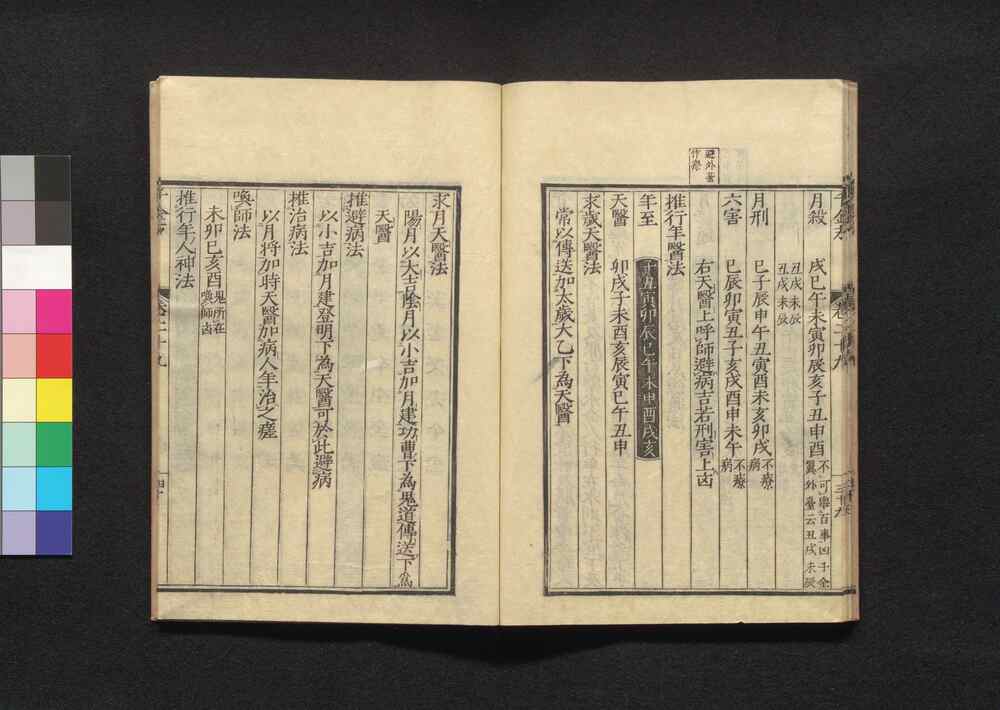 月殺 戌巳午未寅卯辰亥子丑申酉 不可舉百事凶千金翼外臺云丑戌未辰
丑戌未辰丑戌未辰
月刑 巳子辰申午丑寅酉未亥卯戌 不療病
六害 巳辰卯寅丑子亥戌酉申未午 不療病
右天醫上呼師避病吉若刑害上凶
推行年醫法
年至 子丑寅卯辰巳午未申酉戌亥
天醫 卯戌子未酉亥辰寅巳午丑申
求歲天醫法
常以傳送加太歲大乙下為天醫
求月天醫法
陽月以大吉陰月以小吉加月建功曹下為鬼道傳送下為
天醫
推避病法
以小吉加月建登明下為天醫可於此避病
推治病法
以月將加時天醫加病人年治之瘥
喚師法
未卯巳亥酉 鬼所在喚師凶
推行年人神法